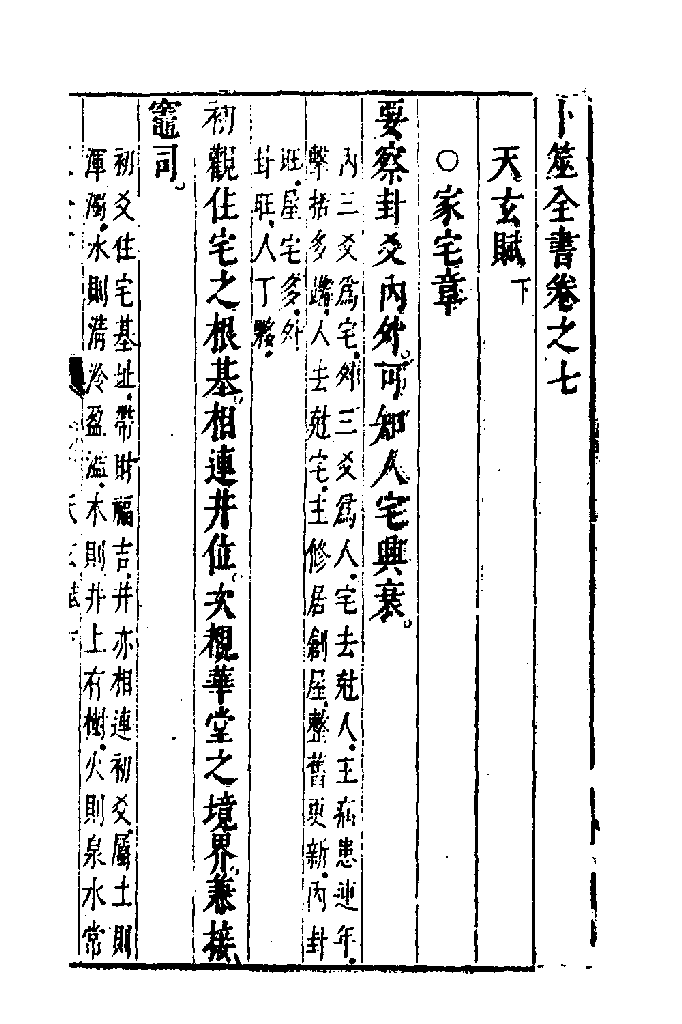 卜筮全書卷之七
天玄賦下
○家宅章
要察卦爻內外可知人宅興衰。
內三爻爲宅外三爻爲人宅去尅人主病患連年
擊括多端人去尅宅主修居創屋整舊更新內卦
旺屋宅多外
卦旺人丁夥
初觀住宅之根基相連井位次覩華堂之境界兼接
竈司。
初爻住宅基址帶財福吉井亦相連初爻屬土則
渾濁水則清冷盈溢木則井上有樹火則泉水常